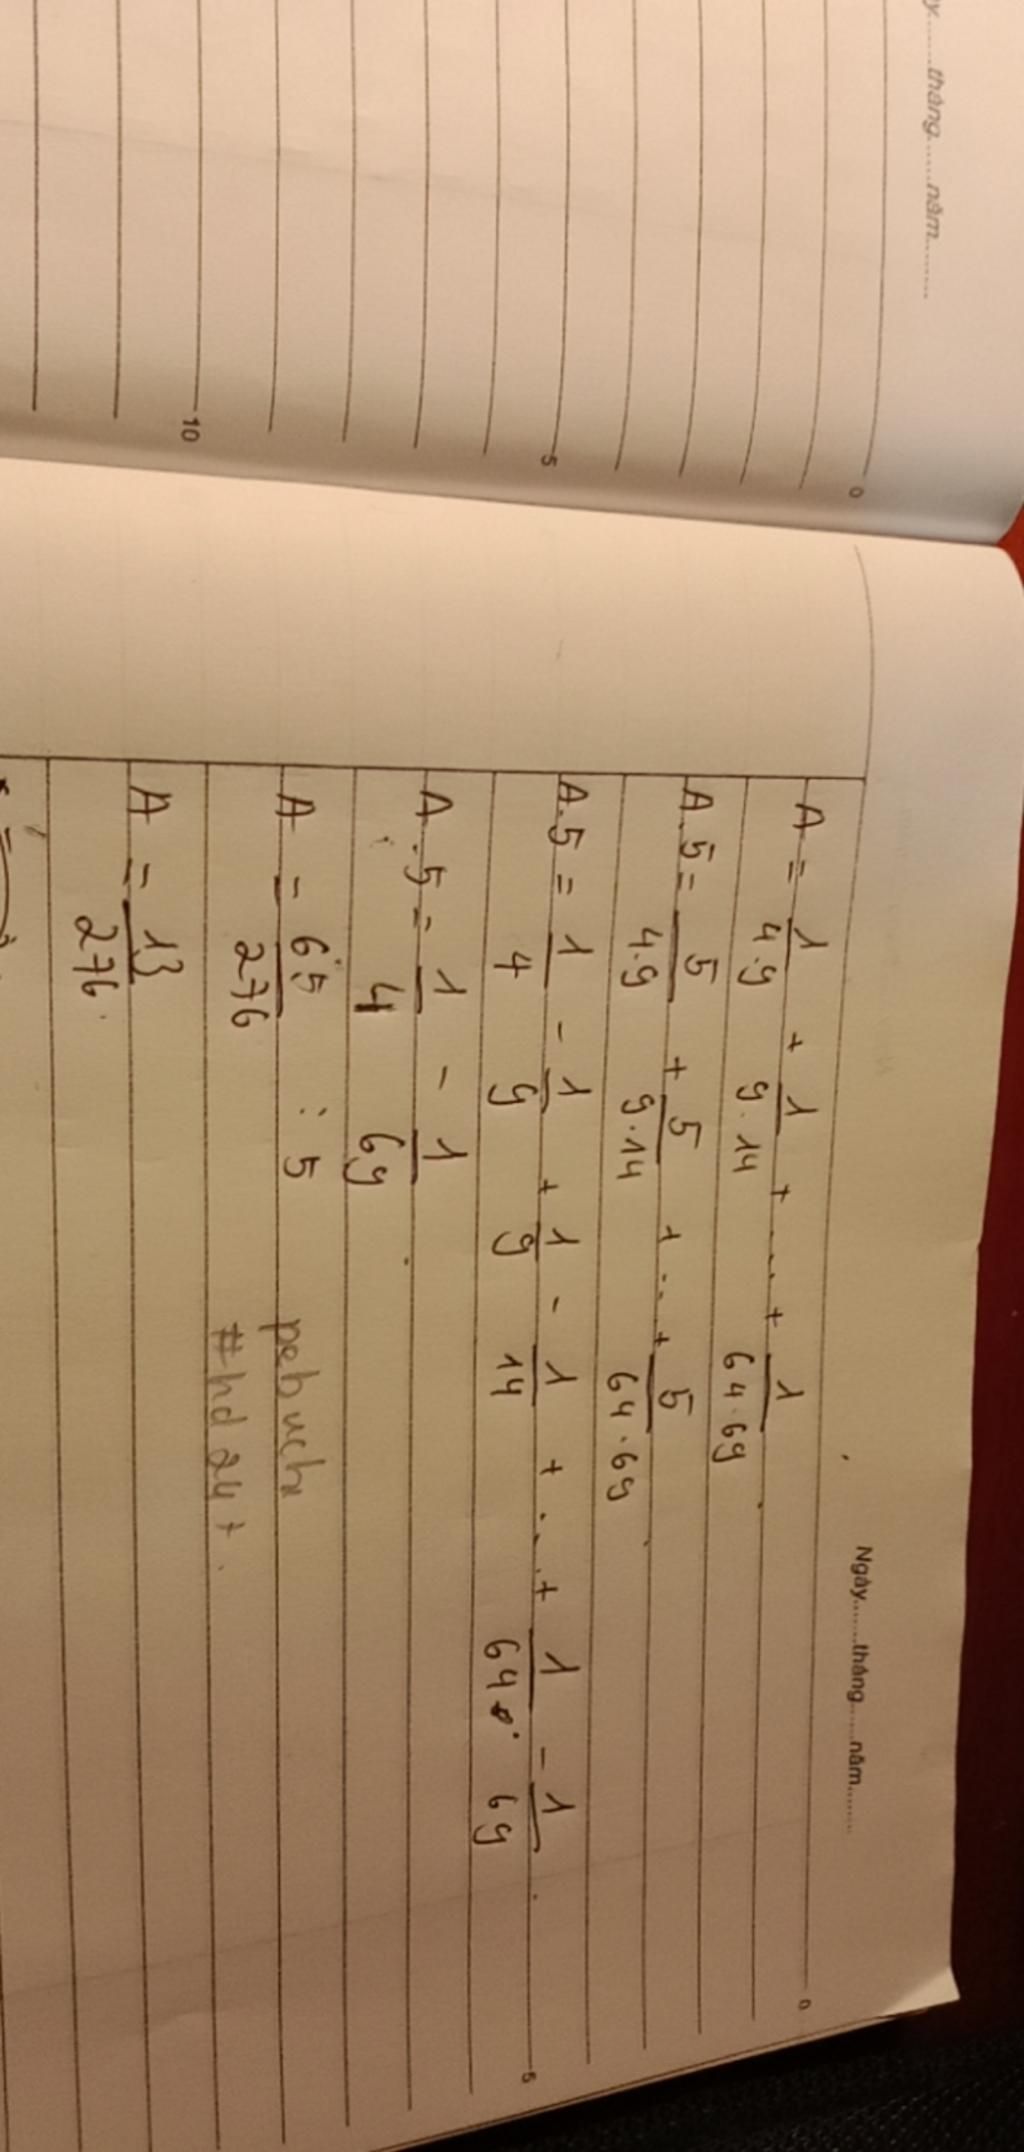 tháng......năm........
0
5
10
Ngày.......tháng......năm........
0
A = 1/4.9 + 1/9.14 + ... + 1/64.69
A.5 = 5/4.9 + 5/9.14 + ... + 5/64.69
A.5 = 1/4 - 1/9 + 1/9 - 1/14 + ... + 1/64 - 1/69
5
A.5 = 1/4 - 1/69
A = 65/276 : 5
pebuch
#hd 24+
A = 13/276